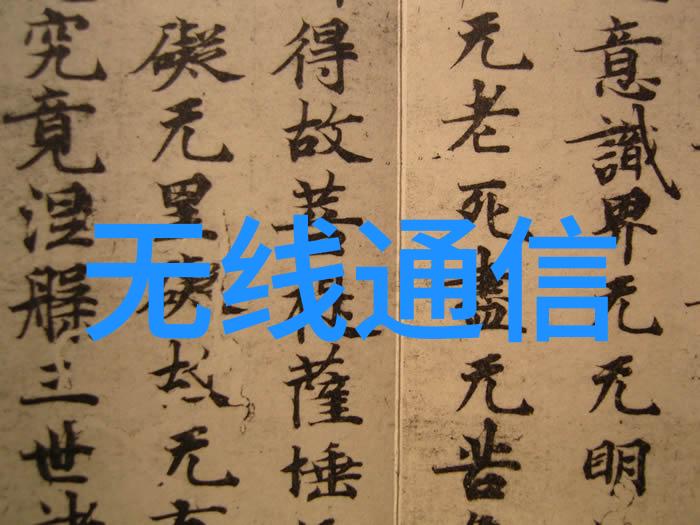 意識界无无明
无老死盡无苦
得故菩提薩埵
礙无罣礙故无
究竟涅槃三世
无线通信